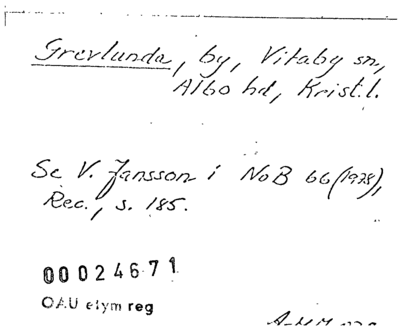 Grevlunda, by, Vitaby sn,
Albo hd, Krist.l.
Se V. Jansson i NoB 66 (1978),
Rec., s. 185.
00024671
OAU etym reg